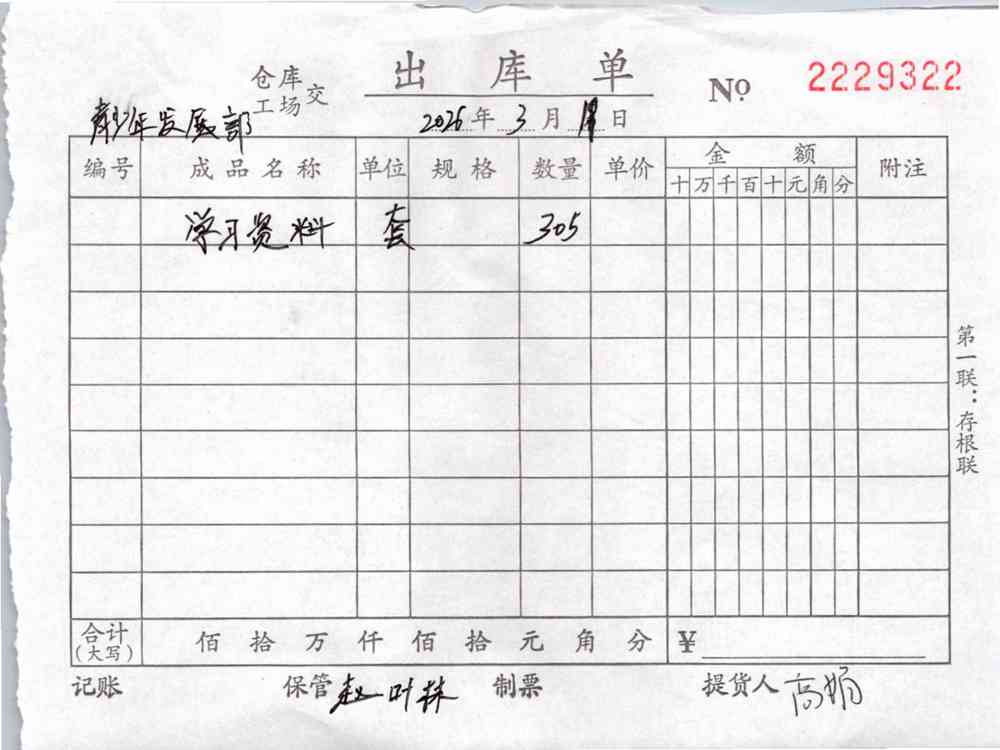 出库单
仓库
工场交
№ 2229322
青少年发展部
2026年3月日
编号 成品名称 单位 规格 数量 单价 金额 附注
十万千百十元角分
学习资料 套 305
第一联：存根联
合计(大写) 佰拾万仟佰拾元角分 ¥
记账 保管 赵一叶林 制票 提货人 高娟